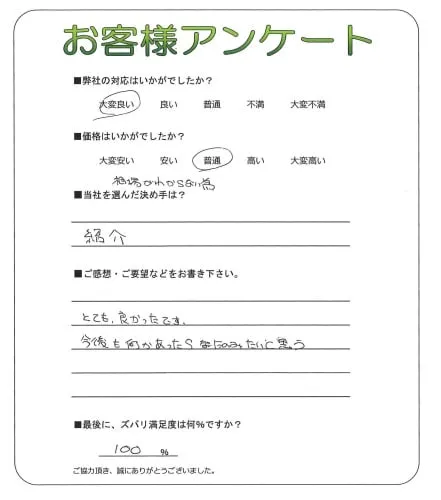 お客様アンケート
■弊社の対応はいかがでしたか?
大変良い 良い 普通 不満 大変不満
■価格はいかがでしたか?
大変安い 安い 普通 高い 大変高い
相場がわからない為
■当社を選んだ決め手は?
紹介
■ご感想・ご要望などをお書き下さい。
とても、良かったです。
今後も何かあったらまたたのみたいと思う
■最後に、ズバリ満足度は何%ですか?
100 %
ご協力頂き、誠にありがとうございました。